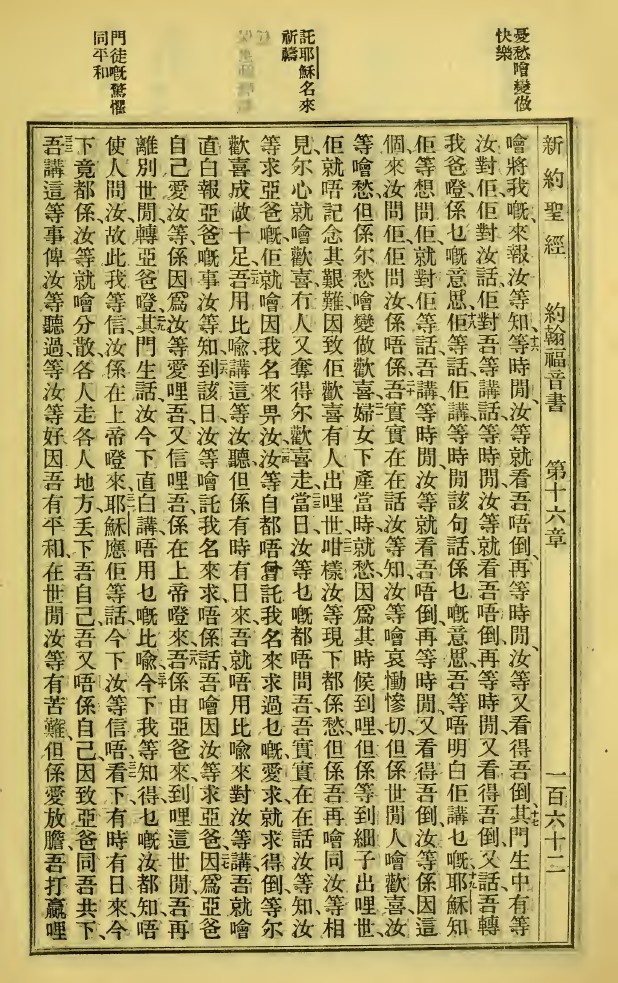 憂愁噲變做
快樂
託耶穌名來
祈禱
門徒嘅驚懼
同平和
新約聖經 約翰福音書 第十六章 一百六十二
噲將我嘅來報汝等知、十六等時間、汝等就看吾唔倒、再等時間、汝等又看得吾倒、十七其門生中有等
汝對佢、佢對汝話、佢對吾等講話、等時間汝等就看吾唔倒、再等時間、又看得吾倒、又話吾轉
我爸噔、係乜嘅意思、十八佢等話、佢講等時間該句話、係乜嘅意思、吾等唔明白佢講乜嘅、十九耶穌知
佢等想問佢、就對佢等話、吾講等時間、汝等就看吾唔倒、再等時間、又看得吾倒、汝等係因這
個來汝問佢佢問汝係唔係、二十吾實實在在話汝等知、汝等噲哀慟慘切、但係世間人噲歡喜、汝
等噲愁、但係尔愁噲變做歡喜、二一婦女下產當時就愁、因爲其時候到哩、但係等到細子出哩世、
佢就唔記念其艱難、因致佢歡喜有人出哩世、二二咁樣汝等現下都係愁、但係吾再噲同汝等相
見、尔心就噲歡喜、冇人又奪得尔歡喜走、二三當日汝等乜嘅都唔問吾、吾實實在在話汝等知、汝
等求亞爸嘅、佢就噲因我名來畀汝、二四汝等自都唔曾託我名來求過乜嘅、愛求、就求得倒、等尔
歡喜成敵十足、二五吾用比喩講這等汝聽、但係有時有日來、吾就唔用比喩來對汝等講、吾就噲
直白報亞爸嘅事汝等知、二六到該日汝等噲託我名來求、唔係話吾噲因汝等求亞爸、二七因爲亞爸
自己愛汝等、係因爲汝等愛哩吾、又信哩吾係在上帝噔來、二八吾係由亞爸來到哩這世間、吾再
離別世間、轉亞爸噔、二九其門生話、汝今下直白講、唔用乜嘅比喩、三十今下我等知得乜嘅汝都知、唔
使人問汝、故此我等信汝係在上帝噔來、三一耶穌應佢等話、今下汝等信唔、三二看下有時有日來、今
下竟都係、汝等就噲分散、各人走各人地方、丟下吾自己、吾又唔係自己、因致亞爸同吾共下、
三三吾講這等事俾汝等聽過、等汝等好因吾有平和、在世間汝等有苦難、但係愛放膽、吾打贏哩